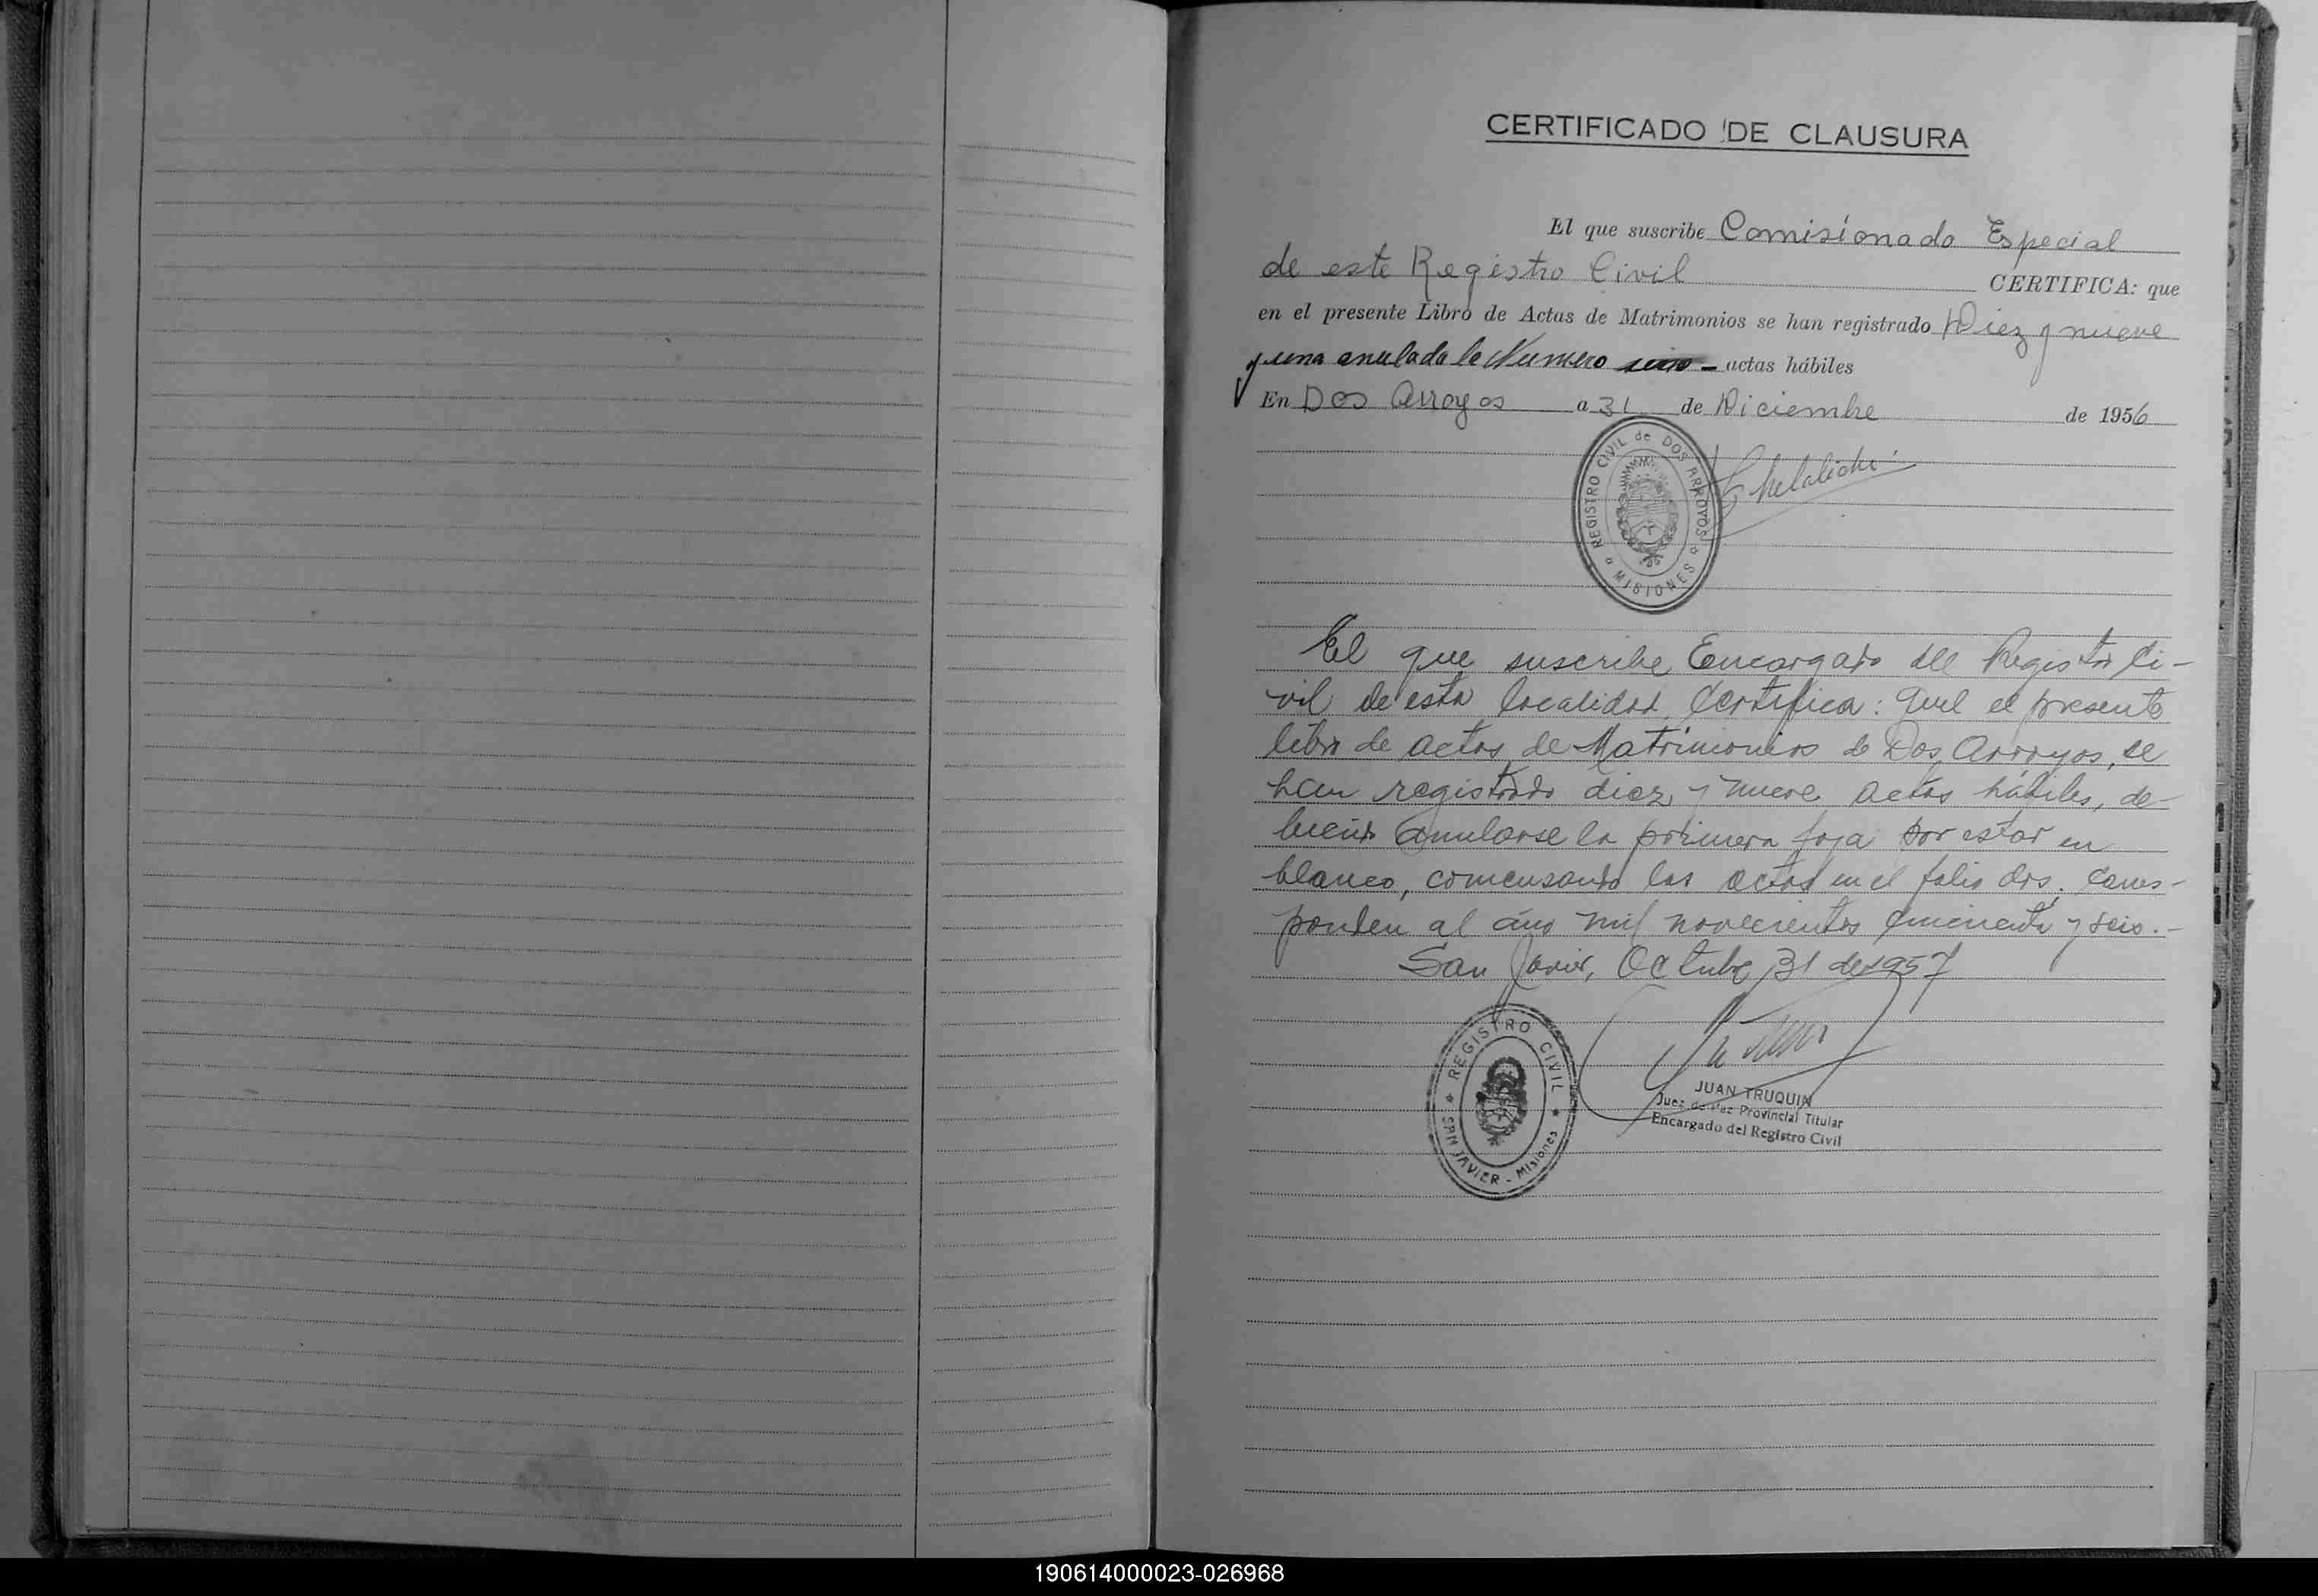 CERTIFICADO DE CLAUSURA
El que suscribe Comisionado Especial
de este Registro Civil CERTIFICA: que
en el presente Libro de Actas de Matrimonios se han registrado Diez y nueve
y una anulada la Numero actas hábiles
En Dos Arroyos a 31 de Diciembre de 1956
REGISTRO CIVIL de DOS ARROYOS
MISIONES
El que suscribe Encargado del Registro Ci-
vil de esta localidad, Certifica: Que el presente
libro de actas de Matrimonios de Dos Arroyos, se
han registrado diez y nueve actas hábiles, de-
biendo anularse la primera foja por estar en
blanco, comensando las actas en el folio dos. Corres-
ponden al año mil novecientos cincuenta y seis.-
San Javier, Octubre 31 de 1957
REGISTRO CIVIL
SAN JAVIER - Misiones
JUAN TRUQUIN
Juez de Paz Provincial Titular
Encargado del Registro Civil
190614000023-026968